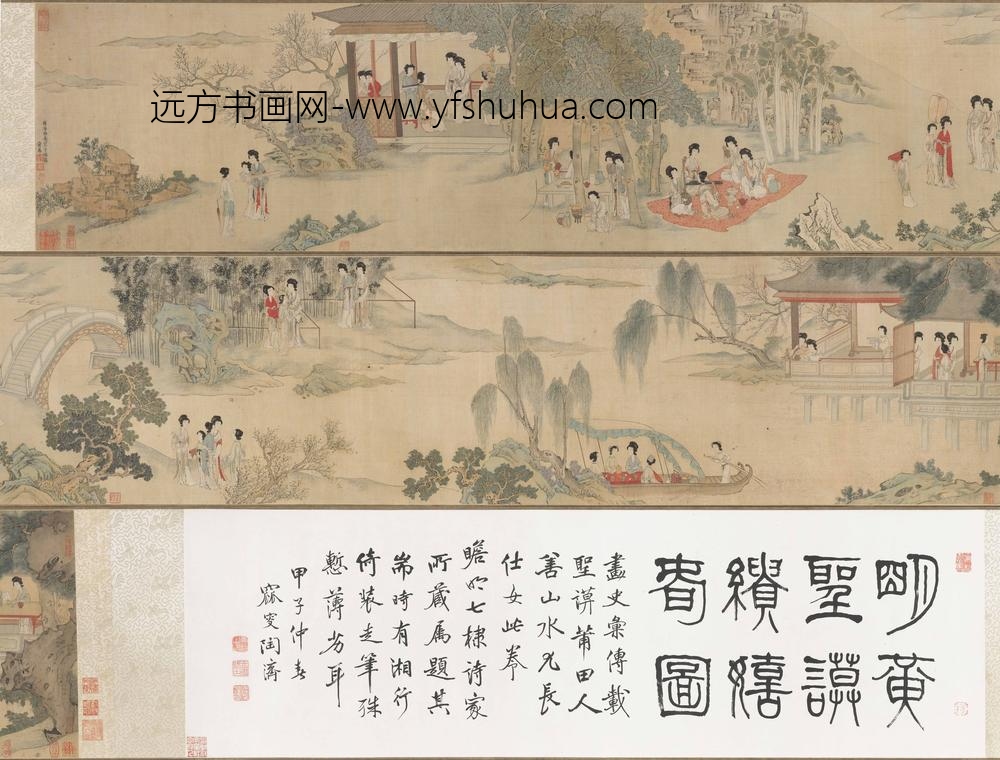 远方书画网-www.yfshuhua.com
明黄
聖謨
繢嬉
春圖
畫史彙傳載
聖謨莆田人
善山水尤長
仕女此卷
瞻明七棣詩家
所藏屬題其
耑時有湘行
倚装走筆殊
慙薄劣耳
甲子仲春
叟陶